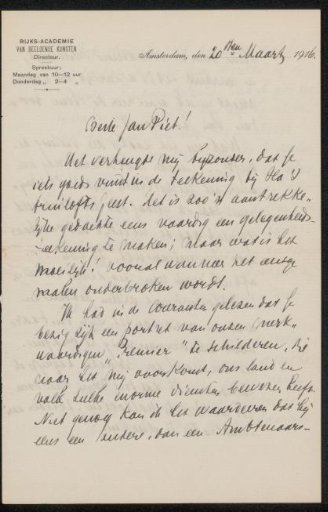 RIJKS-ACADEMIE
VAN BEELDENDE KUNSTEN
Directeur.
Spreekuur:
Maandag van 10–12 uur
Donderdag „ 2–4 „
Amsterdam, den 20sten Maart 1916.
Beste Jan Piet!
Het verheugde mij bijzonder, dat je
iets goeds vindt in de teekening bij
bruiloftsfeest. Het is zoo'n aantrekke-
lijke gedachte eens vaardig een gelegenheids-
teekening te maken; maar wat is het
moeilijk! vooral wanneer het
malen onderbroken wordt.
Ik had in de couranten gelezen dat je
bezig zijt een portret van onzen merk-
waardigen „Premier" te schilderen, die
naar het mij voorkomt, ons land en
volk zulke enorme diensten bewezen heeft.
Niet genoeg kan ik het waardeeren dat hij
eens een andere, dan een Ambtenaars-